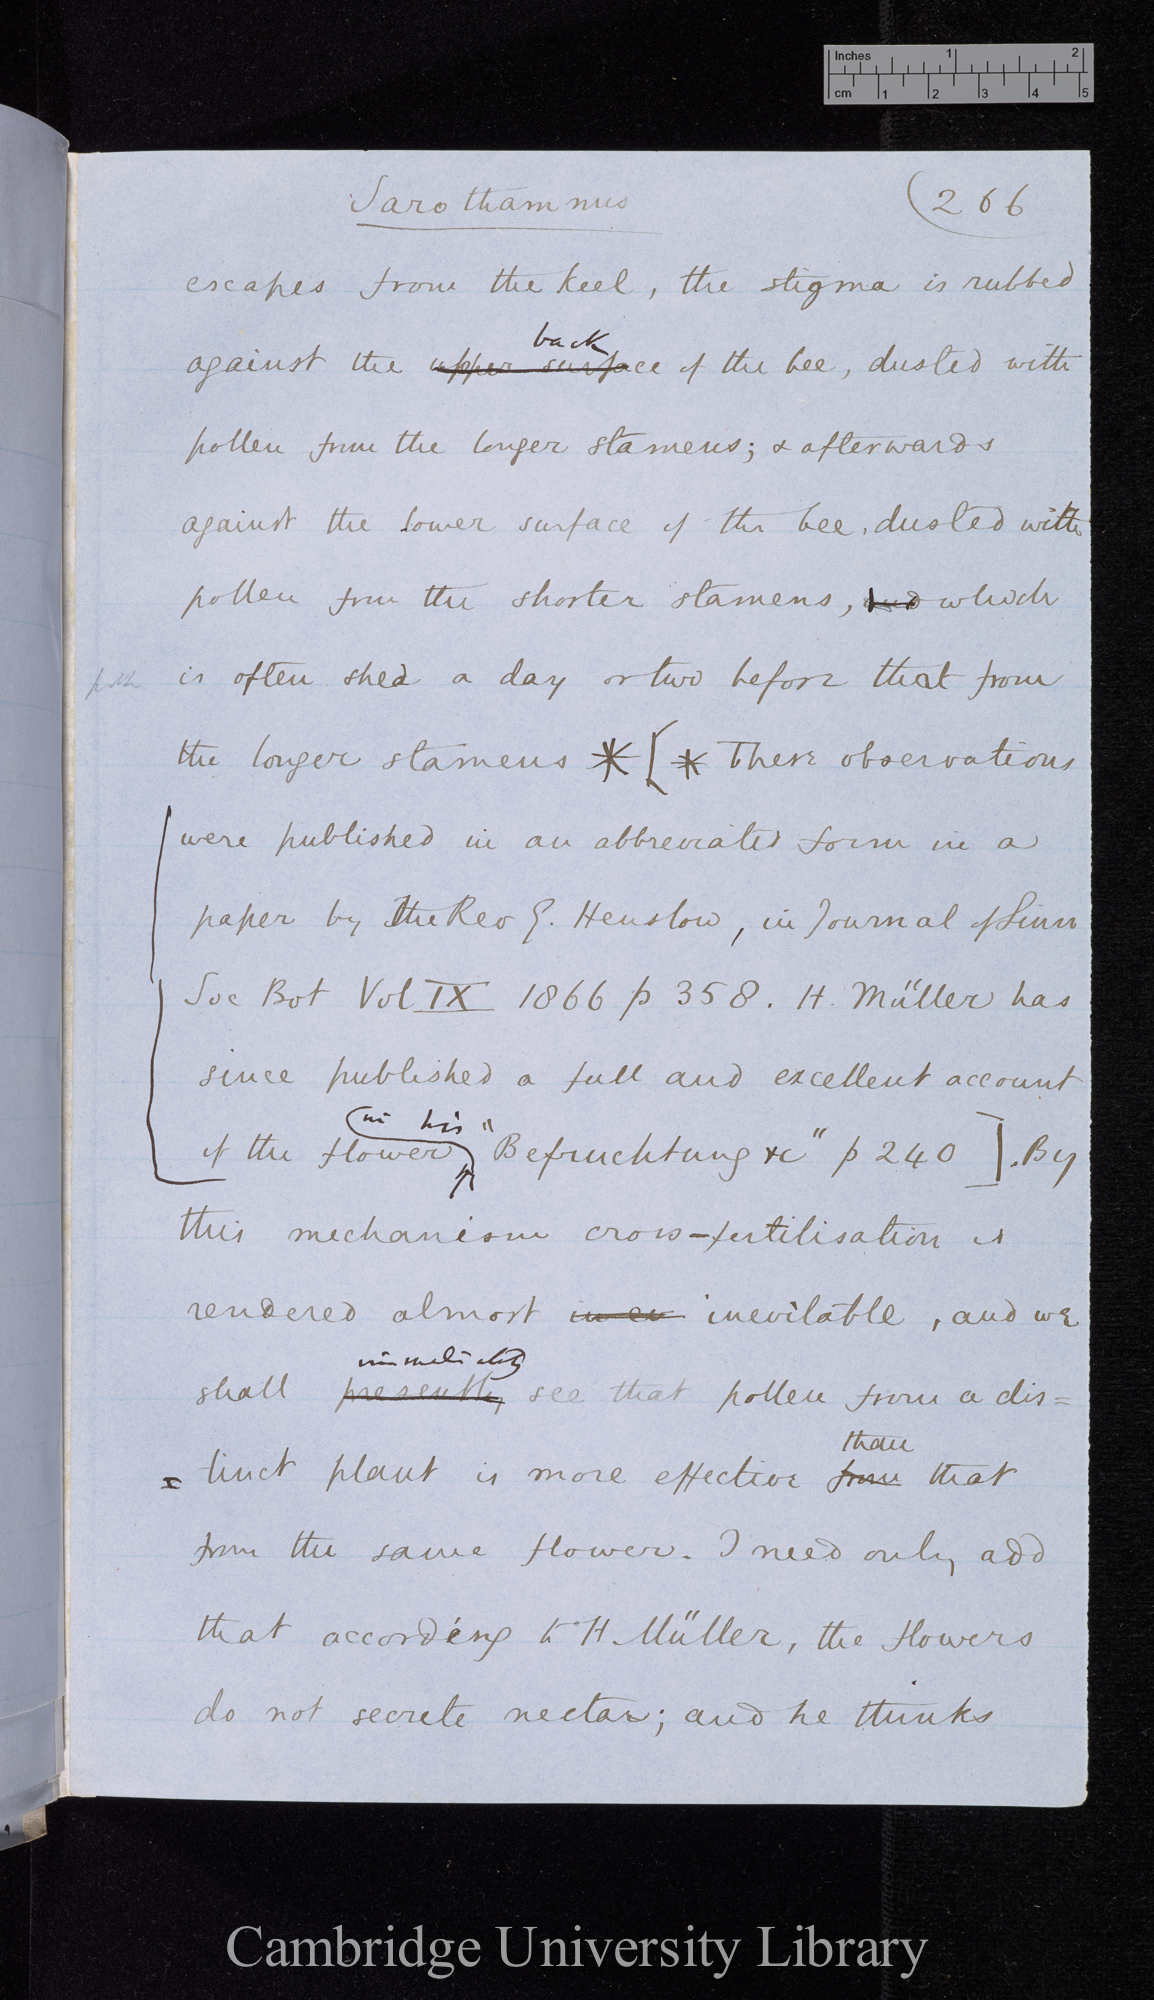 Inches 1 2
cm 1 2 3 4 5
Sarothamnus (266
escapes from the keel, the stigma is rubbed
back
against the upper surface of the bee, dusted with
pollen from the longer stamens; & afterwards
against the lower surface of the bee, dusted with
pollen from the shorter stamens, and which
is often shed a day or two before that from
the longer stamens * [* These observations
were published in an abbreviated form in a
paper by the Rev G. Henslow, in Journal of Linn
Soc Bot Vol IX 1866 p 358. H. Müller has
since published a full and excellent account
in his
of the flower "Befruchtung &c" p 240]. By
this mechanism cross-fertilisation is
rendered almost in ev inevitable, and we
immediately
shall presently see that pollen from a dis=
than
=tinct plant is more effective from that
from the same flower. I need only add
that according to H. Müller, the flowers
do not secrete nectar; and he thinks
Cambridge University Library